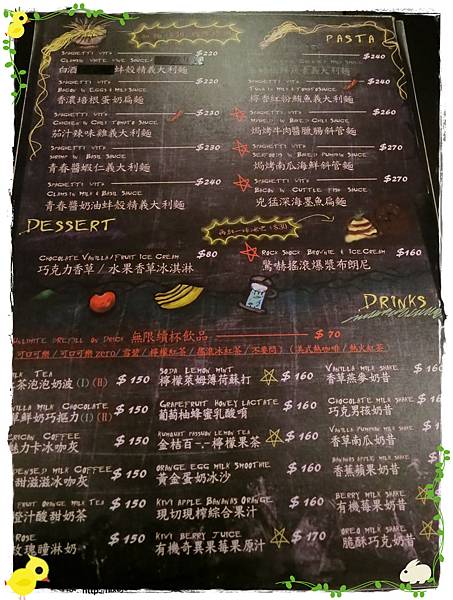 PASTA
SPAGHETTI WITH
$220
白酒 蚌殼精義大利麵
SPAGHETTI WITH
BACON W EGGS & MILK SAUCE $230
香濃培根蛋奶扁麵
SPAGHETTI WITH
CHICKEN W CHILI TOMATO SAUCE $230
茄汁辣味雞義大利麵
SPAGHETTI WITH
SHRIMP W BASIL SAUCE $230
青春醬蝦仁義大利麵
SPAGHETTI WITH
CLAMS IN MILK & BASIL SAUCE $240
青春醬奶油蚌殼精義大利麵
SPAGHETTI WITH
$240
義大利麵
SPAGHETTI WITH
$240
檸香紅粉鮪魚義大利麵
$260
焗烤牛肉醬臘腸斜管麵
$270
焗烤南瓜海鮮斜管麵
SPAGHETTI WITH
BACON W CUTTLE FISH SAUCE $270
兇猛深海墨魚扁麵
DESSERT
CHOCOLATE VANILLA/FRUIT ICE CREAM $80
巧克力香草/水果香草冰淇淋
ROCK SHOCK BROWNIE & ICE CREAM $160
驚赫搖滾爆漿布朗尼
DRINKS
無限續杯飲品 $70
(可口可樂/可口可樂zero/雪碧/檸檬紅茶/
MILK TEA $150
茶泡泡奶波(I)(II)
VANILLA MILK CHOCOLATE $150
草鮮奶巧摳力(I)(II)
AMERICAN COFFEE $150
魅力卡冰咖灰
CONDENSED MILK COFFEE $150
甜滋滋冰咖灰
FRUIT ORANGE MILK TEA $150
澄汁酸甜奶茶
ROSE $150
玫瑰瞳淋奶
SODA LEMON MINT $160
檸檬萊姆薄荷蘇打
GRAPEFRUIT HONEY LACTATE $160
葡萄柚蜂蜜乳酸唷
KUMQUAT PASSION LEMON TEA $160
金桔百ㄧㄧ檸檬果茶
ORANGE EGG MILK SMOOTHIE $160
黃金蛋奶冰沙
KIVI APPLE BANANAS ORANGE $160
現切現榨綜合果汁
KIVI BERRY JUICE $170
有機奇異果莓果原汁
VANILLA MILK SHAKE
香草燕麥奶昔
CHOCOLATE MILK SHAKE
巧克男孩奶昔
VANILLA PUMPKIN MILK SHAKE
香草南瓜奶昔
BANANAS APPLE MILK SHAKE
香蕉蘋果奶昔
BERRY MILK SHAKE
有機莓果奶昔
OREO MILK SHAKE
脆酥巧克奶昔